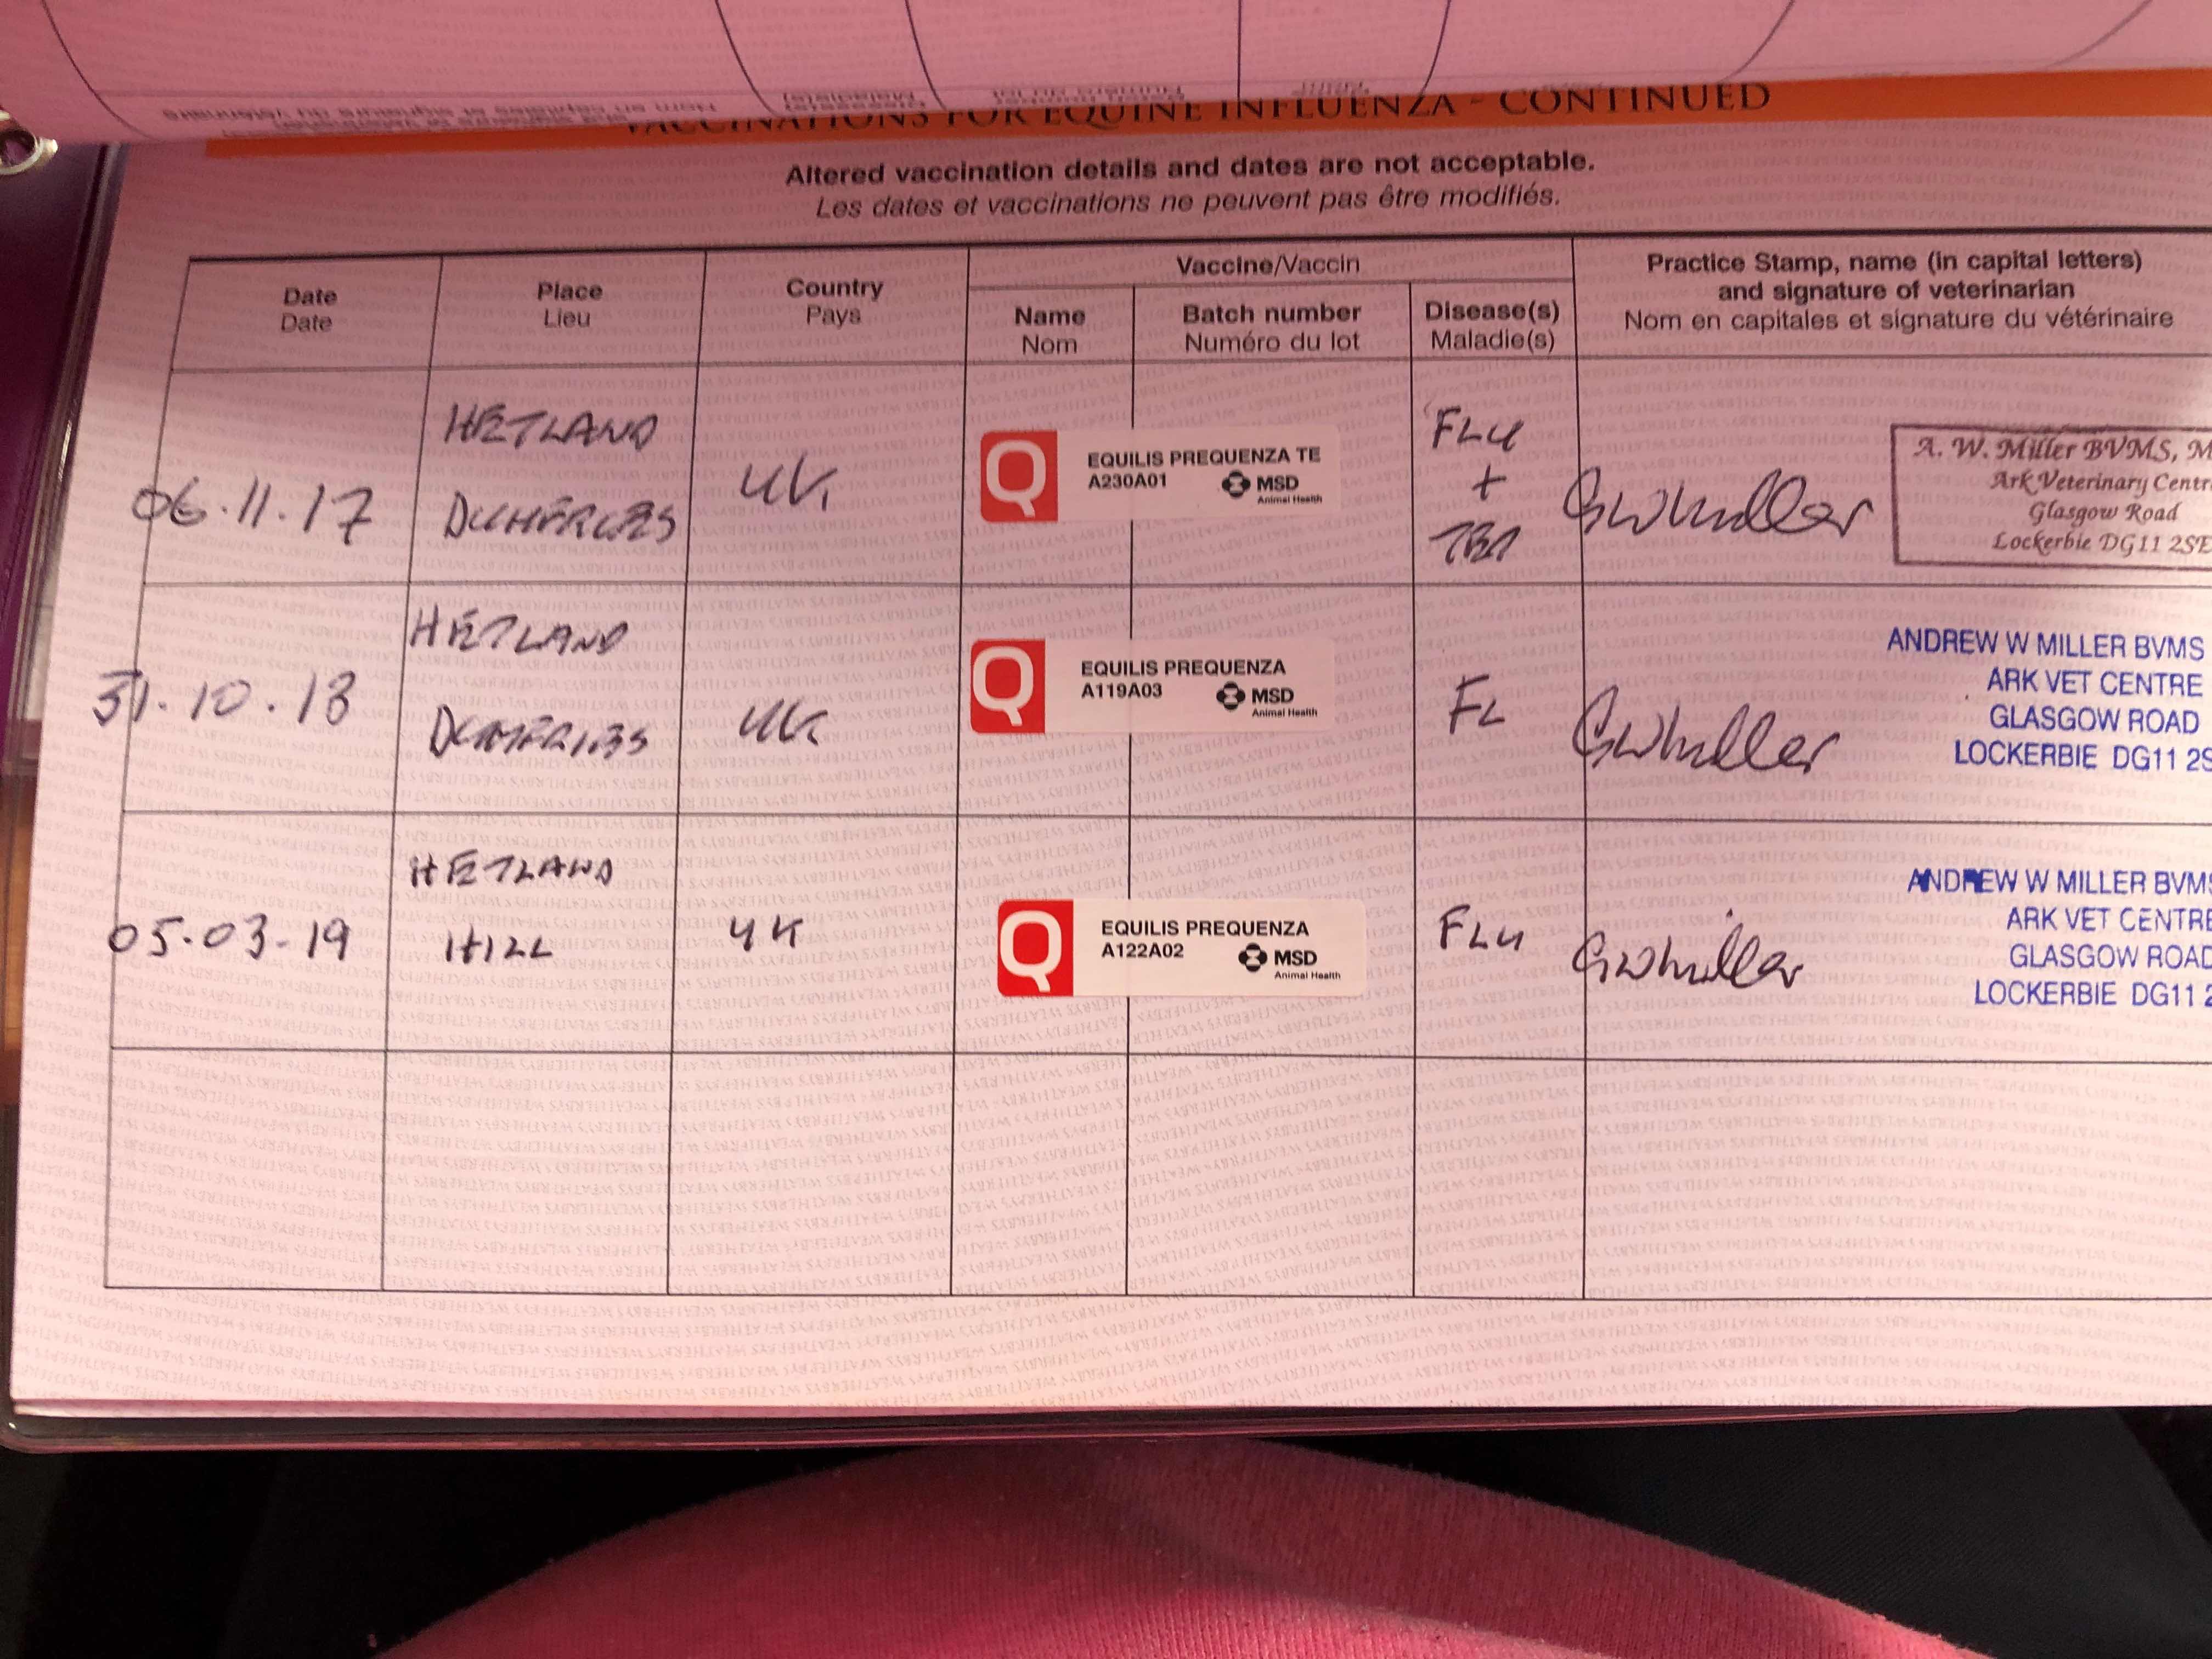 VACCINATIONS FOR EQUINE INFLUENZA - CONTINUED
Altered vaccination details and dates are not acceptable.
Les dates et vaccinations ne peuvent pas être modifiés.
Date
Date
Place
Lieu
Country
Pays
Vaccine/Vaccin
Name
Nom
Batch number
Numéro du lot
Disease(s)
Maladie(s)
Practice Stamp, name (in capital letters)
and signature of veterinarian
Nom en capitales et signature du vétérinaire
06.11.17
HETLAND
DUMFRIES
UK
Q
EQUILIS PREQUENZA TE
A230A01
MSD
Animal Health
FLU
+
A. W. Miller BVMS, M
Ark Veterinary Centr
Glasgow Road
Lockerbie DG11 2SE
31.10.18
HETLAND
DUMFRIES
UK
Q
EQUILIS PREQUENZA
A119A03
MSD
Animal Health
FL
ANDREW W MILLER BVMS
ARK VET CENTRE
GLASGOW ROAD
LOCKERBIE DG11 2S
05.03-19
HETLAND
HILL
UK
Q
EQUILIS PREQUENZA
A122A02
MSD
Animal Health
FLU
ANDREW W MILLER BVMS
ARK VET CENTRE
GLASGOW ROAD
LOCKERBIE DG11 2